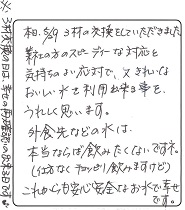 本日、5/9 3村の交換をしていただきました
業社の方のスピーディーな対応と
気持ちのよい応対で、又きれいな
おいしい水を利用出来る事を、
うれしく思います。
外食先などの水は、
本当ならば飲みたくないですネ。
(仕方なくチョッピリ飲みますけど)
これからも安心安全なお水で幸せ
です。
※ 3村交換の日は、幸せの再確認の出来る日です♥